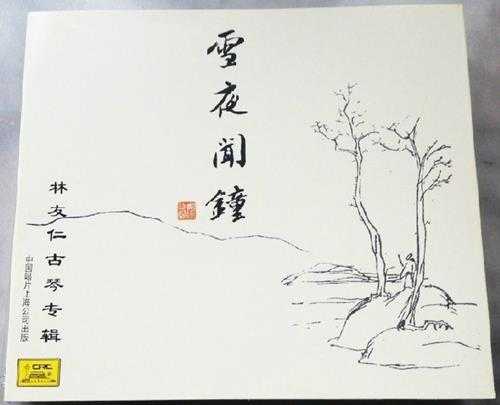 雪夜闻鐘
林友仁古琴专辑
中国唱片上海公司出版
CRC